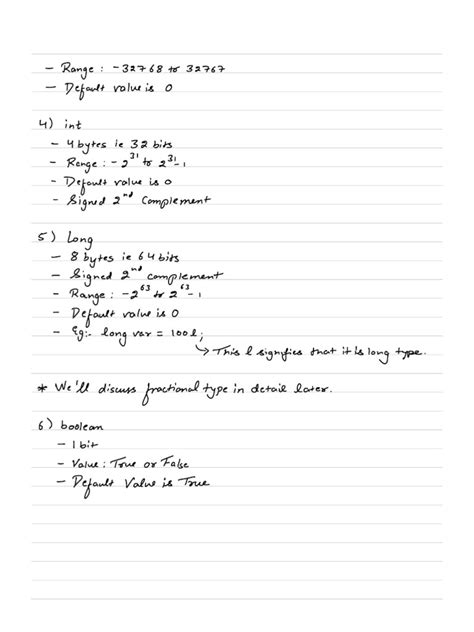 - Range : -32768 to 32767
- Default value is 0
4) int
- 4 bytes ie 32 bits
- Range : -2^31 to 2^31-1
- Default value is 0
- Signed 2^nd Complement
5) Long
- 8 bytes ie 64 bits
- Signed 2^nd complement
- Range : -2^63 to 2^63-1
- Default value is 0
- Eg:- long var = 100l;
↳ This l signifies that it is long type.
* We'll discuss fractional type in detail later.
6) boolean
- 1 bit
- Value : True or False
- Default Value is True